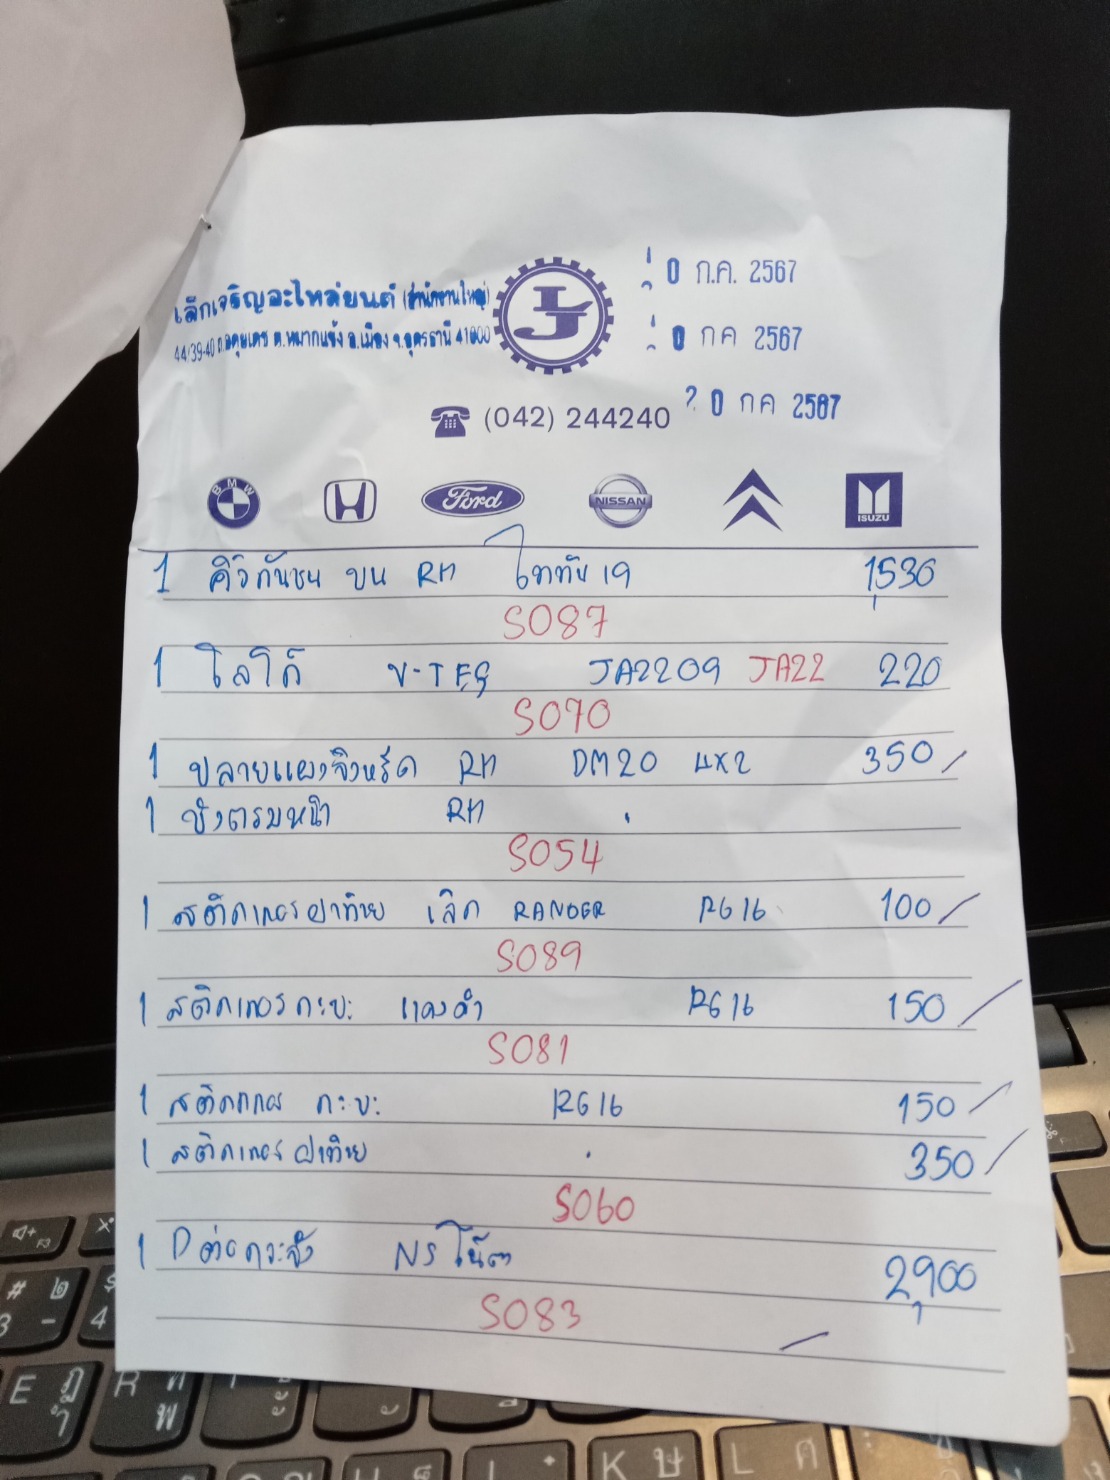 เล็กเจริญอะไหล่ยนต์ (สำนักงานใหญ่)
44/39-40 ถ.อดุยเดช ต.หมากแข้ง อ.เมือง จ.อุดรธานี 41000
LJ
0 ก.ค. 2567
0 กค 2567
20 กค 2567
(042) 244240
BMW Ford NISSAN ISUZU
1 คิ้วกันชน บน RH ไททัน 19 1,530
S087
1 โลโก้ V-TEC JA2209 JA22 220
S070
1 ปลายแผงจิงหรีด RH DM20 4x2 350/
1 บังตรมหน้า RH .
S054
1 สติกเกอร์ฝาท้าย เล็ก RANGER RG16 100/
S089
1 สติกเกอร์กะบะ แดงดำ RG16 150/
S081
1 สติกเกอร์ กะบะ RG16 150/
1 สติกเกอร์ฝาท้าย . 350/
S060
1 NS โน๊ต 2,900
S083